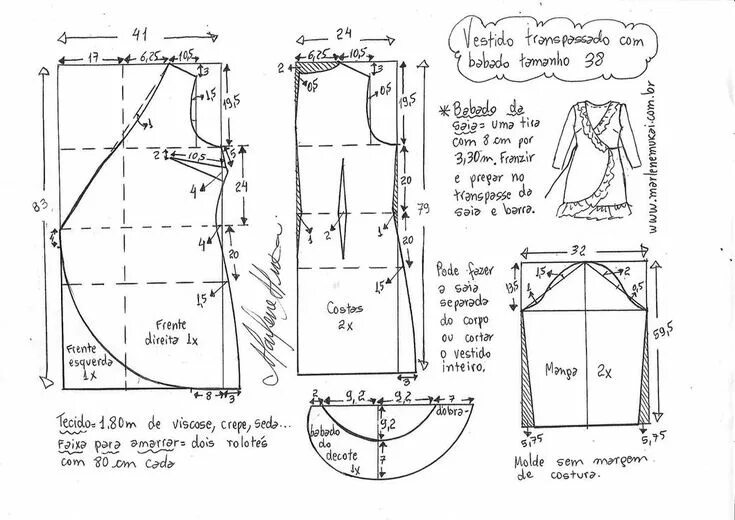 Vestido transpassado com
babado tamanho 38
41
17
6,25
10,5
3
1,5
19,5
1
2
10,5
5
4
24
4
83
4
20
1,5
Frente
direita 1x
Frente
esquerda
1x
8
3
24
6,25
10,5
2
3
0,5
0,5
19,5
20
79
1
2
1
20
1,5
Costas
2x
3
* Babado da
saia = uma tira
com 8 cm por
3,30m. Franzir
e prepar no
transpasse da
saia e barra.
www.marlenemukai.com.br
Pode fazer
a saia
separada
do corpo
ou cortar
o vestido
inteiro.
32
13,5
1,5
2
1
0,5
59,5
Manga 2x
5,75
5,75
Molde sem margem
de costura.
2
9,2
9,2
7
dobra
9,2
babado
do
decote
1x
7
Tecido = 1.80m de viscose, crepe, seda...
Faixa para amarrar = dois rolotés
com 80 cm cada
Marlene Mukai